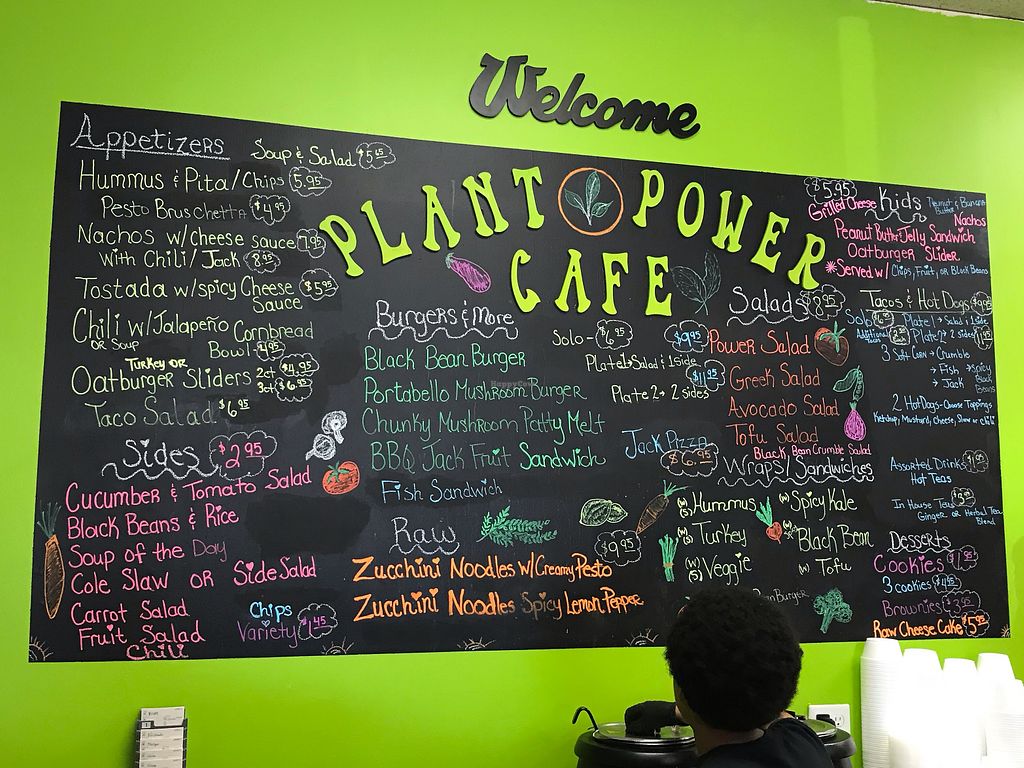 Welcome
PLANT POWER
CAFE
Appetizers
Soup & Salad $5.45
Hummus & Pita/Chips 5.95
Pesto Bruschetta $4.95
Nachos w/Cheese sauce 7.95
with Chili/Jack 8.95
Tostada w/spicy Cheese $5.95
Sauce
Chili w/Jalapeño Cornbread
or Soup
Bowl 4.95
Turkey or
Oatburger Sliders 2ct $4.95
3ct $6.95
Taco Salad $6.95
Sides $2.95
Cucumber & Tomato Salad
Black Beans & Rice
Soup of the Day
Cole Slaw or Side Salad
Carrot Salad
Fruit Salad
Chili
Chips
Variety $1.45
Burgers & More
Solo - $6.95
Plate 1 → Salad & 1 side $9.95
Plate 2 → 2 sides $11.95
Black Bean Burger
Portabello Mushroom Burger
Chunky Mushroom Patty Melt
BBQ Jack Fruit Sandwich
Fish Sandwich
Jack Pizza
$6.95
Raw
$9.95
Zucchini Noodles w/Creamy Pesto
Zucchini Noodles Spicy Lemon Pepper
Salads $8.95
Power Salad
Greek Salad
Avocado Salad
Tofu Salad
Black Bean Crumble Salad
Wraps/Sandwiches
Hummus
Turkey
Veggie
Spicy Kale
Black Bean
(w) Tofu
Burger
$5.95
Kids
Grilled Cheese
Peanut & Banana
Butter
Nachos
Peanut Butter Jelly Sandwich
Oatburger Slider
*Served w/ Chips, Fruit, or Black Beans
Tacos & Hot Dogs
Solo
Plate 1 → Salad & 1 side
Plate 2 → 2 sides
3 Soft Corn → Crumble
→ Fish → spicy
→ Jack Black
Beans
2 Hot Dogs - Choose Toppings
Ketchup, Mustard, Cheese, Slaw or Chili
Assorted Drinks $1.95
Hot Teas
In House Teas
Ginger or Herbal Tea
Blend
Desserts
Cookies $1.95
3 cookies $4.95
Brownies $3.95
Raw Cheese Cake $5.95